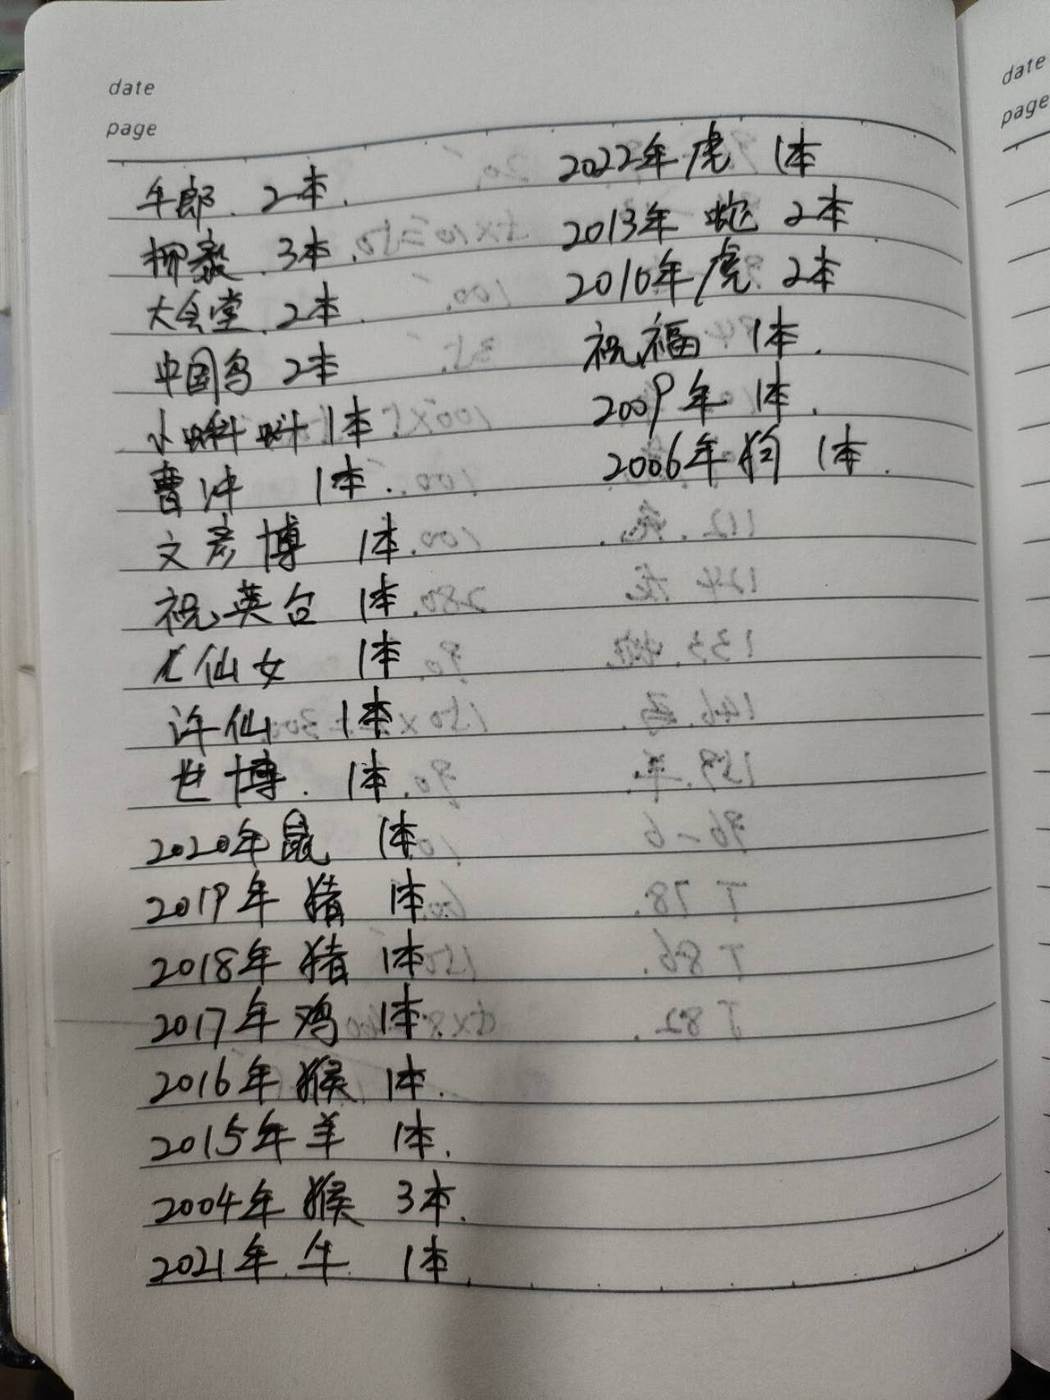 date
page
牛郎. 2本.
柳毅. 3本.
大会堂. 2本.
中国鸟 2本
小蝌蚪 1本.
曹冲 1本.
文彦博 1本.
祝英台 1本.
七仙女 1本
许仙 1本
世博. 1本.
2020年鼠 1本
2019年 猪 1本
2018年 猪 1本
2017年 鸡 1本
2016年 猴 1本.
2015年 羊 1本.
2004年 猴 3本.
2021年 牛 1本
2022年 虎 1本
2013年 蛇 2本
2010年 虎 2本
祝福 1本.
2009年 1本.
2006年 狗 1本.
date
page